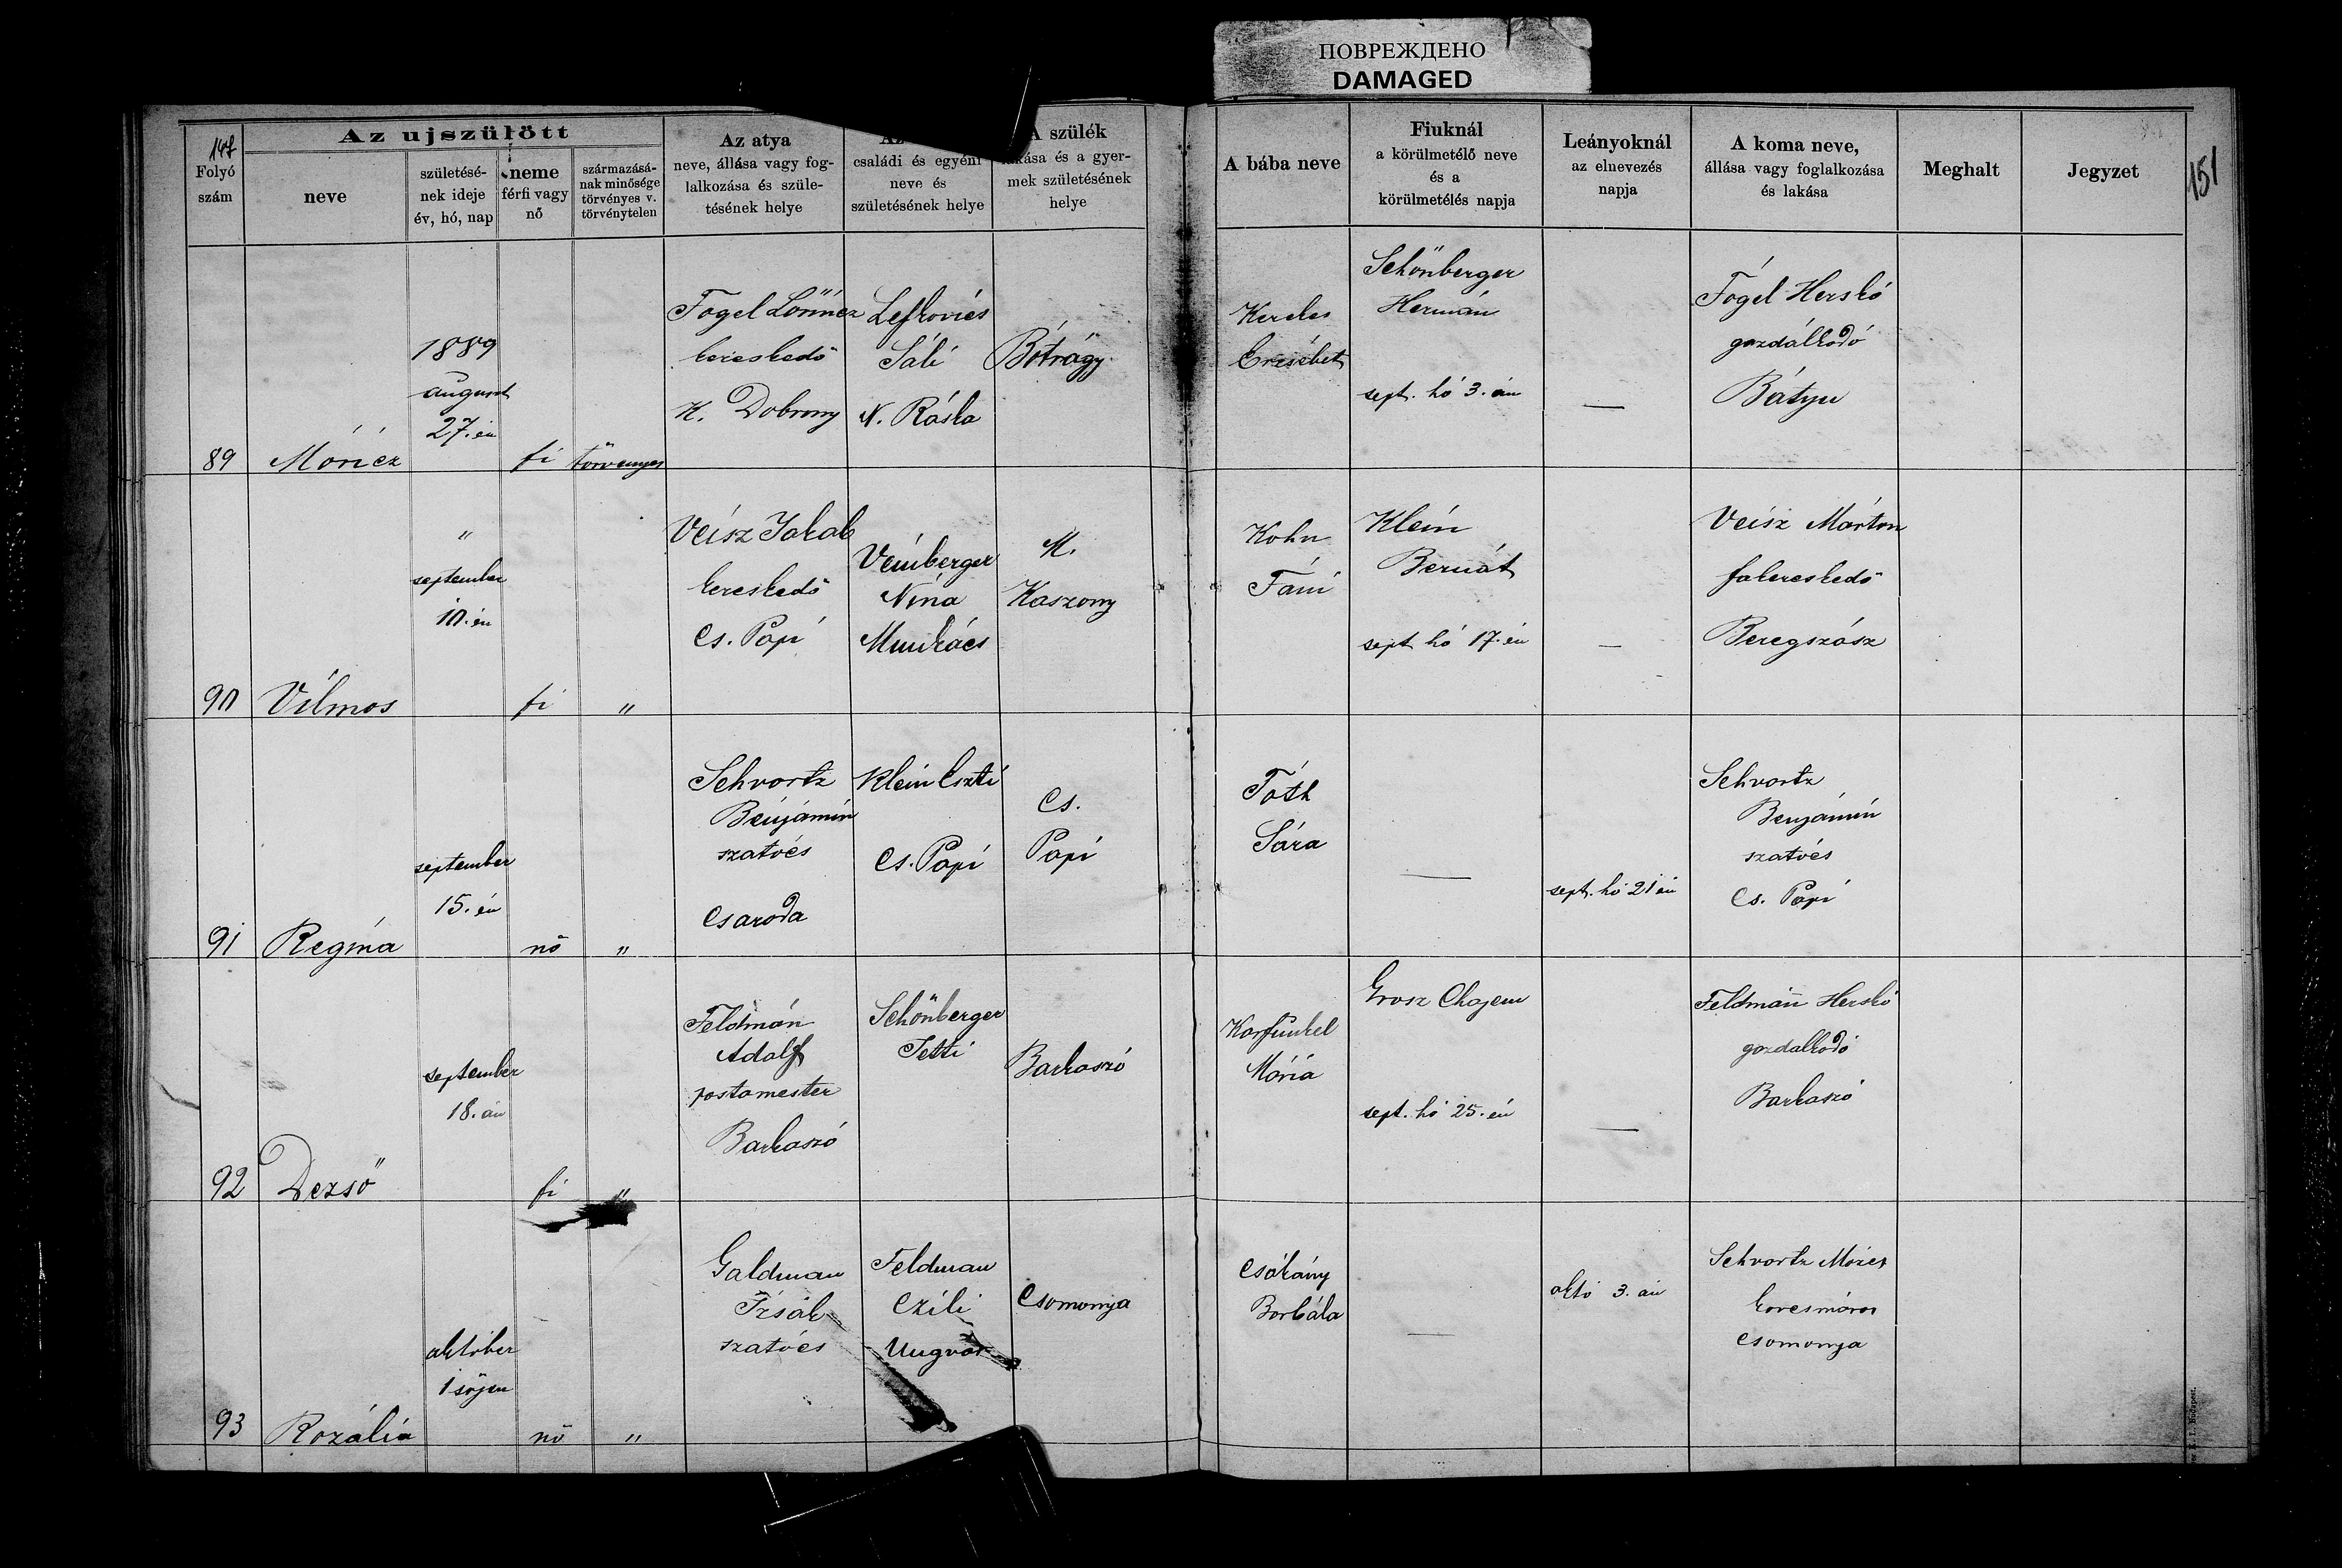 ПОВРЕЖДЕНО
DAMAGED
147
151
Folyó szám
Az ujszülött
neve
születésé-
nek ideje
év, hó, nap
neme
férfi vagy
nő
származásá-
nak minősége
törvényes v.
törvénytelen
Az atya
neve, állása vagy fog-
lalkozása és szüle-
tésének helye
családi és egyéni
neve és
születésének helye
A szülék
lakása és a gyer-
mek születésének
helye
A bába neve
Fiuknál
a körülmetélő neve
és a
körülmetélés napja
Leányoknál
az elnevezés
napja
A koma neve,
állása vagy foglalkozása
és lakása
Meghalt
Jegyzet
89
Móricz
1889
august
27. én
fi
törvenyes
Fogel
kereskedö
K. Dobrony
Lefkovics
Sáli
N. Ráska
Bótrágy
Kerekes
Erzsébet
Schönberger
Hermán
sept. hó 3. án
—
Fógel Herskó
gazdálkodó
Bátyu
90
Vilmos
"
september
10. én
fi
"
Veisz Jakab
kereskedö
Cs. Papi
Veinberger
Nina
Munkács
M.
Kaszony
Kohn
Fáni
Klein
Bernát
sept hó 17. én
—
Veisz Márton
fakereskedö
Beregszász
91
Regina
september
15. én
nö
"
Schvortz
Benjámin
szatócs
Csaroda
Klein Eszti
Cs. Papi
Cs.
Papi
Tóth
Sára
—
sept. hó 21 én
Schvortz
Benjámin
szatócs
Cs. Papi
92
Dezsö
september
18. án
fi
"
Feldmán
Adolf
postamester
Barkaszó
Schönberger
Jetti
Barkaszó
Karfunkel
Mária
Grosz Chajem
sept. hó 25. én
—
Feldmán Herskó
gazdalkodó
Barkaszó
93
Rozália
október
1 söjen
nö
"
Goldman
Izsák
szatócs
Feldman
Czili
Ungvár
Csomonya
Csókány
Borbála
—
októ 3. án
Schvortz Mózes
korcsmáros
Csomonya